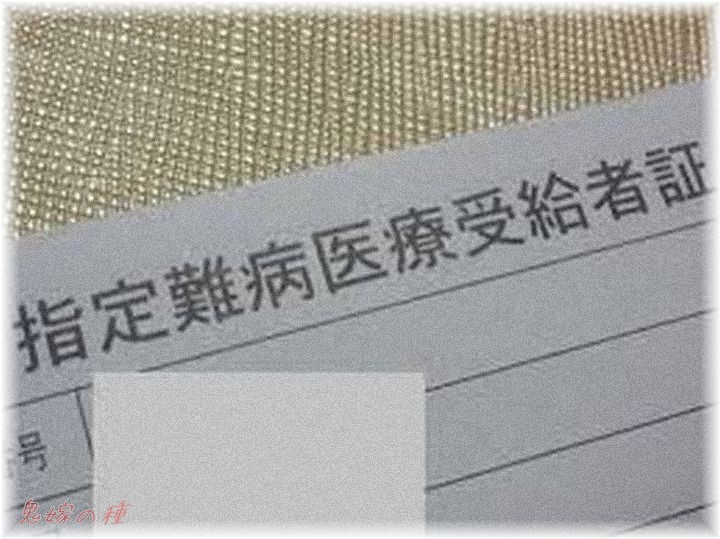 指定難病医療受給者証
号
鬼嫁の種